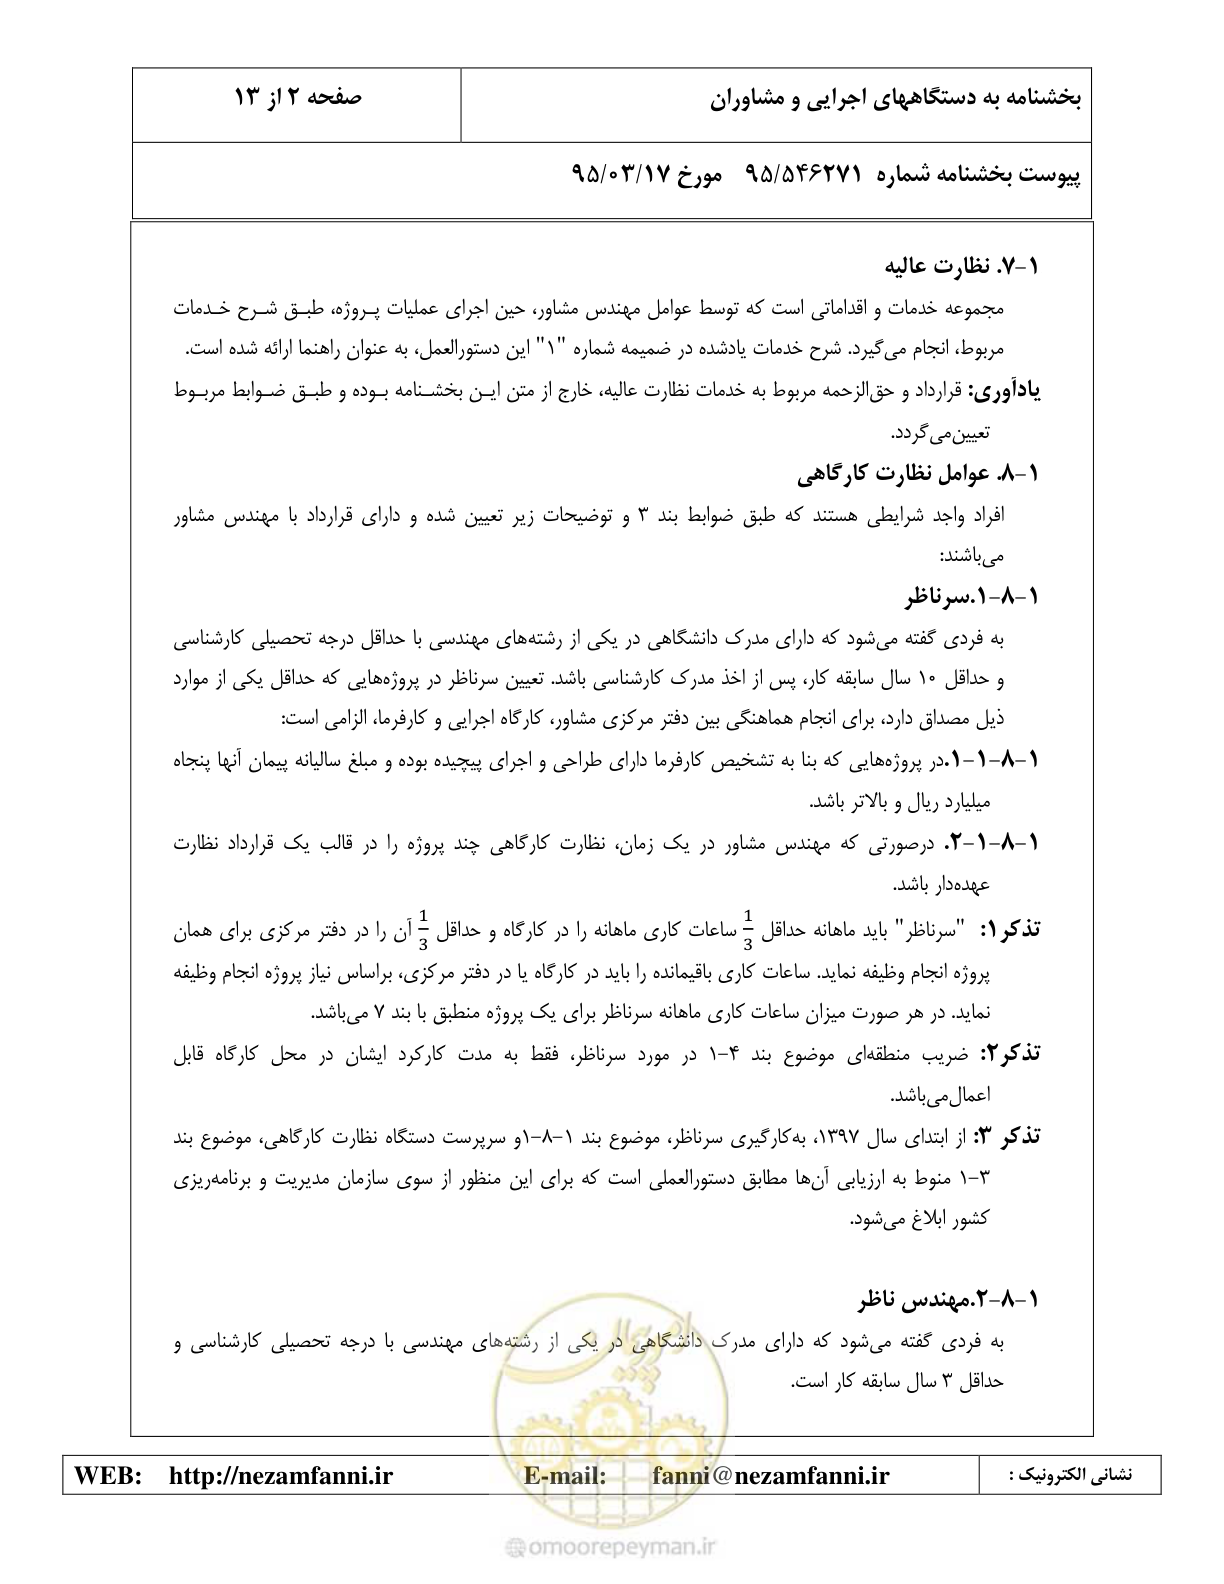 بخشنامه به دستگاههای اجرایی و مشاوران
صفحه ۲ از ۱۳
پیوست بخشنامه شماره ۹۵/۵۴۶۲۷۱ مورخ ۹۵/۰۳/۱۷
۱-۷. نظارت عالیه
مجموعه خدمات و اقداماتی است که توسط عوامل مهندس مشاور، حین اجرای عملیات پـروژه، طبـق شـرح خـدمات
مربوط، انجام می‌گیرد. شرح خدمات یادشده در ضمیمه شماره "۱" این دستورالعمل، به عنوان راهنما ارائه شده است.
یادآوری: قرارداد و حق‌الزحمه مربوط به خدمات نظارت عالیه، خارج از متن ایـن بخشـنامه بـوده و طبـق ضـوابط مربـوط
تعیین‌می‌گردد.
۱-۸. عوامل نظارت کارگاهی
افراد واجد شرایطی هستند که طبق ضوابط بند ۳ و توضیحات زیر تعیین شده و دارای قرارداد با مهندس مشاور
می‌باشند:
۱-۸-۱.سرناظر
به فردی گفته می‌شود که دارای مدرک دانشگاهی در یکی از رشته‌های مهندسی با حداقل درجه تحصیلی کارشناسی
و حداقل ۱۰ سال سابقه کار، پس از اخذ مدرک کارشناسی باشد. تعیین سرناظر در پروژه‌هایی که حداقل یکی از موارد
ذیل مصداق دارد، برای انجام هماهنگی بین دفتر مرکزی مشاور، کارگاه اجرایی و کارفرما، الزامی است:
۱-۸-۱-۱.در پروژه‌هایی که بنا به تشخیص کارفرما دارای طراحی و اجرای پیچیده بوده و مبلغ سالیانه پیمان آنها پنجاه
میلیارد ریال و بالاتر باشد.
۱-۸-۱-۲. درصورتی که مهندس مشاور در یک زمان، نظارت کارگاهی چند پروژه را در قالب یک قرارداد نظارت
عهده‌دار باشد.
تذکر۱: "سرناظر" باید ماهانه حداقل 1/3 ساعات کاری ماهانه را در کارگاه و حداقل 1/3 آن را در دفتر مرکزی برای همان
پروژه انجام وظیفه نماید. ساعات کاری باقیمانده را باید در کارگاه یا در دفتر مرکزی، براساس نیاز پروژه انجام وظیفه
نماید. در هر صورت میزان ساعات کاری ماهانه سرناظر برای یک پروژه منطبق با بند ۷ می‌باشد.
تذکر۲: ضریب منطقه‌ای موضوع بند ۴-۱ در مورد سرناظر، فقط به مدت کارکرد ایشان در محل کارگاه قابل
اعمال‌می‌باشد.
تذکر ۳: از ابتدای سال ۱۳۹۷، به‌کارگیری سرناظر، موضوع بند ۱-۸-۱و سرپرست دستگاه نظارت کارگاهی، موضوع بند
۳-۱ منوط به ارزیابی آن‌ها مطابق دستورالعملی است که برای این منظور از سوی سازمان مدیریت و برنامه‌ریزی
کشور ابلاغ می‌شود.
۱-۸-۲.مهندس ناظر
به فردی گفته می‌شود که دارای مدرک دانشگاهی در یکی از رشته‌های مهندسی با درجه تحصیلی کارشناسی و
حداقل ۳ سال سابقه کار است.
امور پیمان
نشانی الکترونیک :
WEB: http://nezamfanni.ir E-mail: fanni@nezamfanni.ir
@omoorepeyman.ir